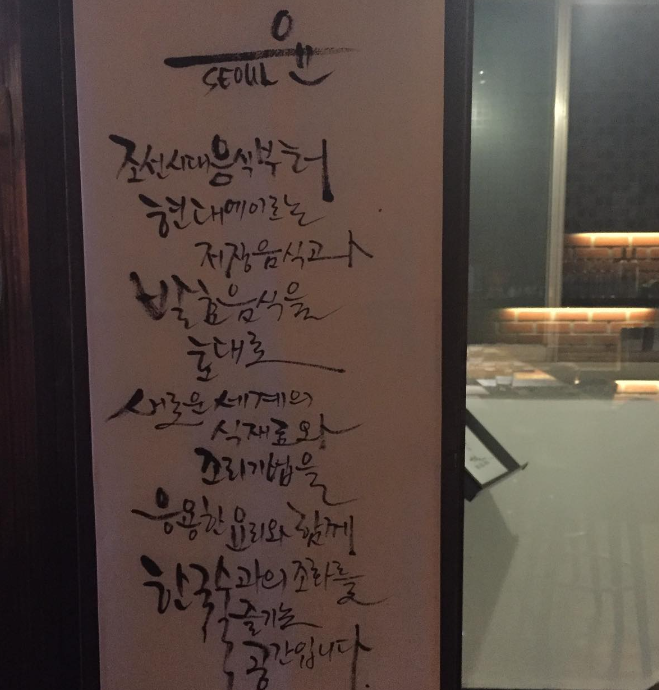 윤
SEOUL
조선시대음식부터
현대에이르는
저장음식과
발효음식을
토대로
새로운 세계의
식재료와
조리기법을
응용한 요리와 함께
한국술과의 조화를
즐기는
공간입니다.